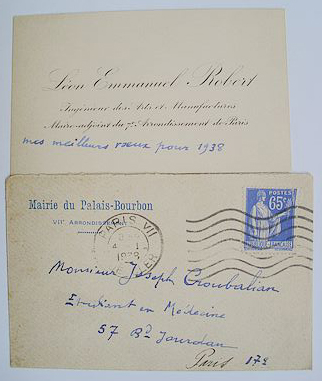 Léon Emmanuel Robert
Ingénieur des Arts et Manufactures
Maire-adjoint du 7e Arrondissement de Paris
mes meilleurs vœux pour 1938
Mairie du Palais-Bourbon
VIIe ARRONDISSEMENT
PARIS VII
4 - 1
1938
POSTES
65c
RÉPUBLIQUE FRANÇAISE
Monsieur Joseph Croubalian
Etudiant en Médecine
57 Bd Jourdan
Paris 14e